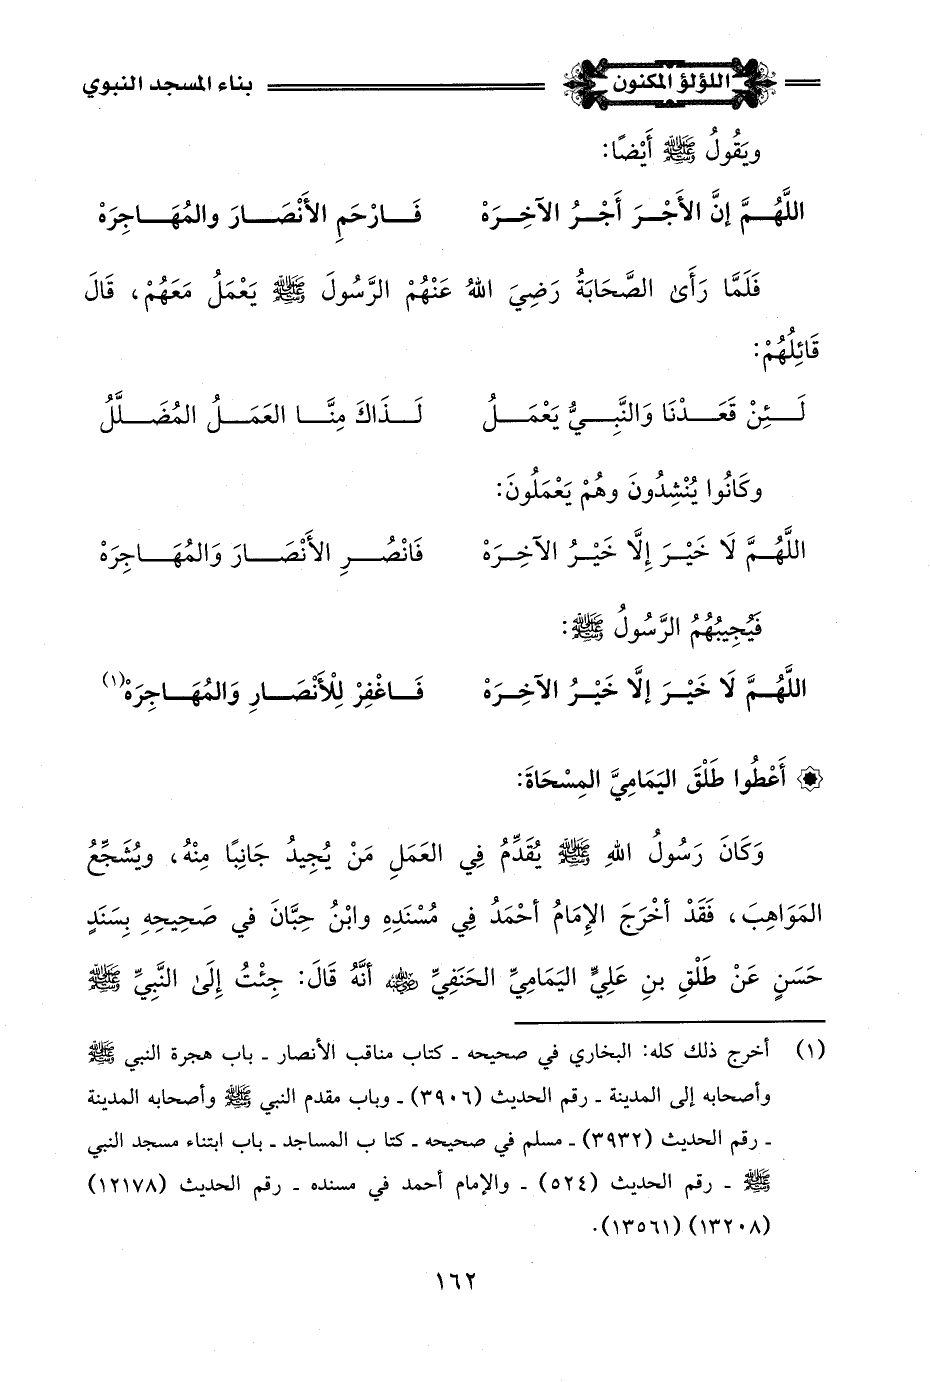 اللؤلؤ المكنون بناء المسجد النبوي
ويَقُولُ ﷺ أَيْضًا:
اللَّهُمَّ إنَّ الأَجْرَ أَجْرُ الآخِرَهْ فَارْحَمِ الأَنْصَارَ والمُهَاجِرَهْ
فَلَمَّا رَأَىٰ الصَّحَابَةُ رَضِيَ اللهُ عَنْهُمْ الرَّسُولَ ﷺ يَعْمَلُ مَعَهُمْ، قَالَ
قَائِلُهُمْ:
لَئِنْ قَعَدْنَا وَالنَّبِيُّ يَعْمَلُ لَذَاكَ مِنَّا العَمَلُ المُضَلَّلُ
وكَانُوا يُنْشِدُونَ وهُمْ يَعْمَلُونَ:
اللَّهُمَّ لَا خَيْرَ إِلَّا خَيْرُ الآخِرَهْ فَانْصُرِ الأَنْصَارَ وَالمُهَاجِرَهْ
فَيُجِيبُهُمُ الرَّسُولُ ﷺ:
اللَّهُمَّ لَا خَيْرَ إلَّا خَيْرُ الآخِرَهْ فَاغْفِرْ لِلْأَنْصَارِ وَالمُهَاجِرَهْ(١)
۞ أَعْطُوا طَلْقَ اليَمَامِيَّ المِسْحَاةَ:
وَكَانَ رَسُولُ اللهِ ﷺ يُقَدِّمُ فِي العَمَلِ مَنْ يُجِيدُ جَانِبًا مِنْهُ، ويُشَجِّعُ
المَوَاهِبَ، فَقَدْ أخْرَجَ الإِمَامُ أحْمَدُ فِي مُسْنَدِهِ وابْنُ حِبَّانَ في صَحِيحِهِ بِسَنَدٍ
حَسَنٍ عَنْ طَلْقِ بنِ عَلِيٍّ اليَمَامِيِّ الحَنَفِيِّ رضي الله عنه أنَّهُ قَالَ: جِئْتُ إِلَىٰ النَّبِيِّ ﷺ
(١) أخرج ذلك كله: البخاري في صحيحه ـ كتاب مناقب الأنصار ـ باب هجرة النبي ﷺ
وأصحابه إلى المدينة ـ رقم الحديث (٣٩٠٦) ـ وباب مقدم النبي ﷺ وأصحابه المدينة
ـ رقم الحديث (٣٩٣٢) ـ مسلم في صحيحه ـ كتا ب المساجد ـ باب ابتناء مسجد النبي
ﷺ ـ رقم الحديث (٥٢٤) ـ والإمام أحمد في مسنده ـ رقم الحديث (١٢١٧٨)
(١٣٢٠٨) (١٣٥٦١).
١٦٢